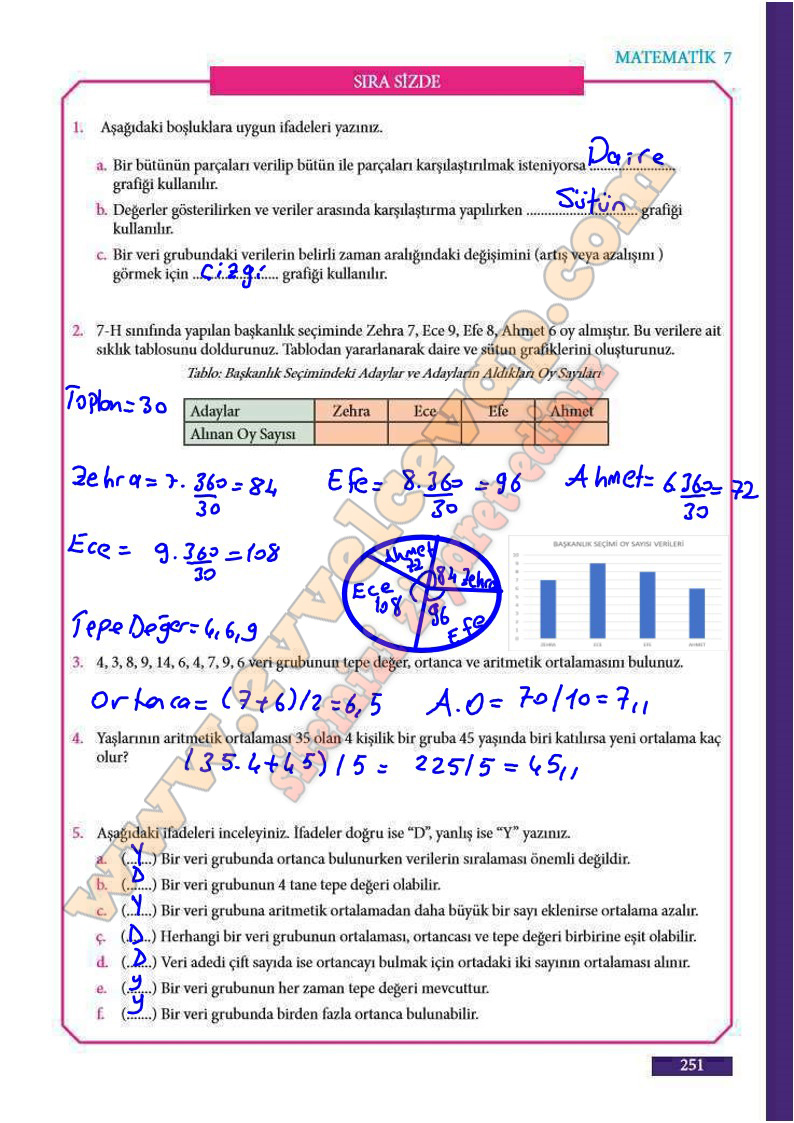 MATEMATİK 7
SIRA SİZDE
1. Aşağıdaki boşluklara uygun ifadeleri yazınız.
a. Bir bütünün parçaları verilip bütün ile parçaları karşılaştırılmak isteniyorsa Daire
grafiği kullanılır.
b. Değerler gösterilirken ve veriler arasında karşılaştırma yapılırken ....Sütün.... grafiği
kullanılır.
c. Bir veri grubundaki verilerin belirli zaman aralığındaki değişimini (artış veya azalışını )
görmek için ..çizgi.... grafiği kullanılır.
2. 7-H sınıfında yapılan başkanlık seçiminde Zehra 7, Ece 9, Efe 8, Ahmet 6 oy almıştır. Bu verilere ait
sıklık tablosunu doldurunuz. Tablodan yararlanarak daire ve sütun grafiklerini oluşturunuz.
Tablo: Başkanlık Seçimindeki Adaylar ve Adayların Aldıkları Oy Sayıları
Toplam=30
Adaylar Zehra Ece Efe Ahmet
Alınan Oy Sayısı
Zehra=7.360/30=84 Efe=8.360/30=96 Ahmet=6.360/30=72
Ece=9.360/30=108
BAŞKANLIK SEÇİMİ OY SAYISI VERİLERİ
10
9
8
7
6
5
4
3
2
1
0
ZEHRA ECE EFE AHMET
Ahmet 72
84 Zehra
Ece 108
96 Efe
Tepe Değer=4,6,9
3. 4, 3, 8, 9, 14, 6, 4, 7, 9, 6 veri grubunun tepe değer, ortanca ve aritmetik ortalamasını bulunuz.
Ortanca=(7+6)/2=6,5 A.O=70/10=7,,
4. Yaşlarının aritmetik ortalaması 35 olan 4 kişilik bir gruba 45 yaşında biri katılırsa yeni ortalama kaç
olur?
(35.4+45)/5= 225/5=45,,
5. Aşağıdaki ifadeleri inceleyiniz. İfadeler doğru ise “D”, yanlış ise “Y” yazınız.
a. (..Y..) Bir veri grubunda ortanca bulunurken verilerin sıralaması önemli değildir.
b. (..D..) Bir veri grubunun 4 tane tepe değeri olabilir.
c. (..Y..) Bir veri grubuna aritmetik ortalamadan daha büyük bir sayı eklenirse ortalama azalır.
ç. (..D..) Herhangi bir veri grubunun ortalaması, ortancası ve tepe değeri birbirine eşit olabilir.
d. (..D..) Veri adedi çift sayıda ise ortancayı bulmak için ortadaki iki sayının ortalaması alınır.
e. (..Y..) Bir veri grubunun her zaman tepe değeri mevcuttur.
f. (..Y..) Bir veri grubunda birden fazla ortanca bulunabilir.
251
www.evvelcevap.com
sitemizi ziyaret ediniz